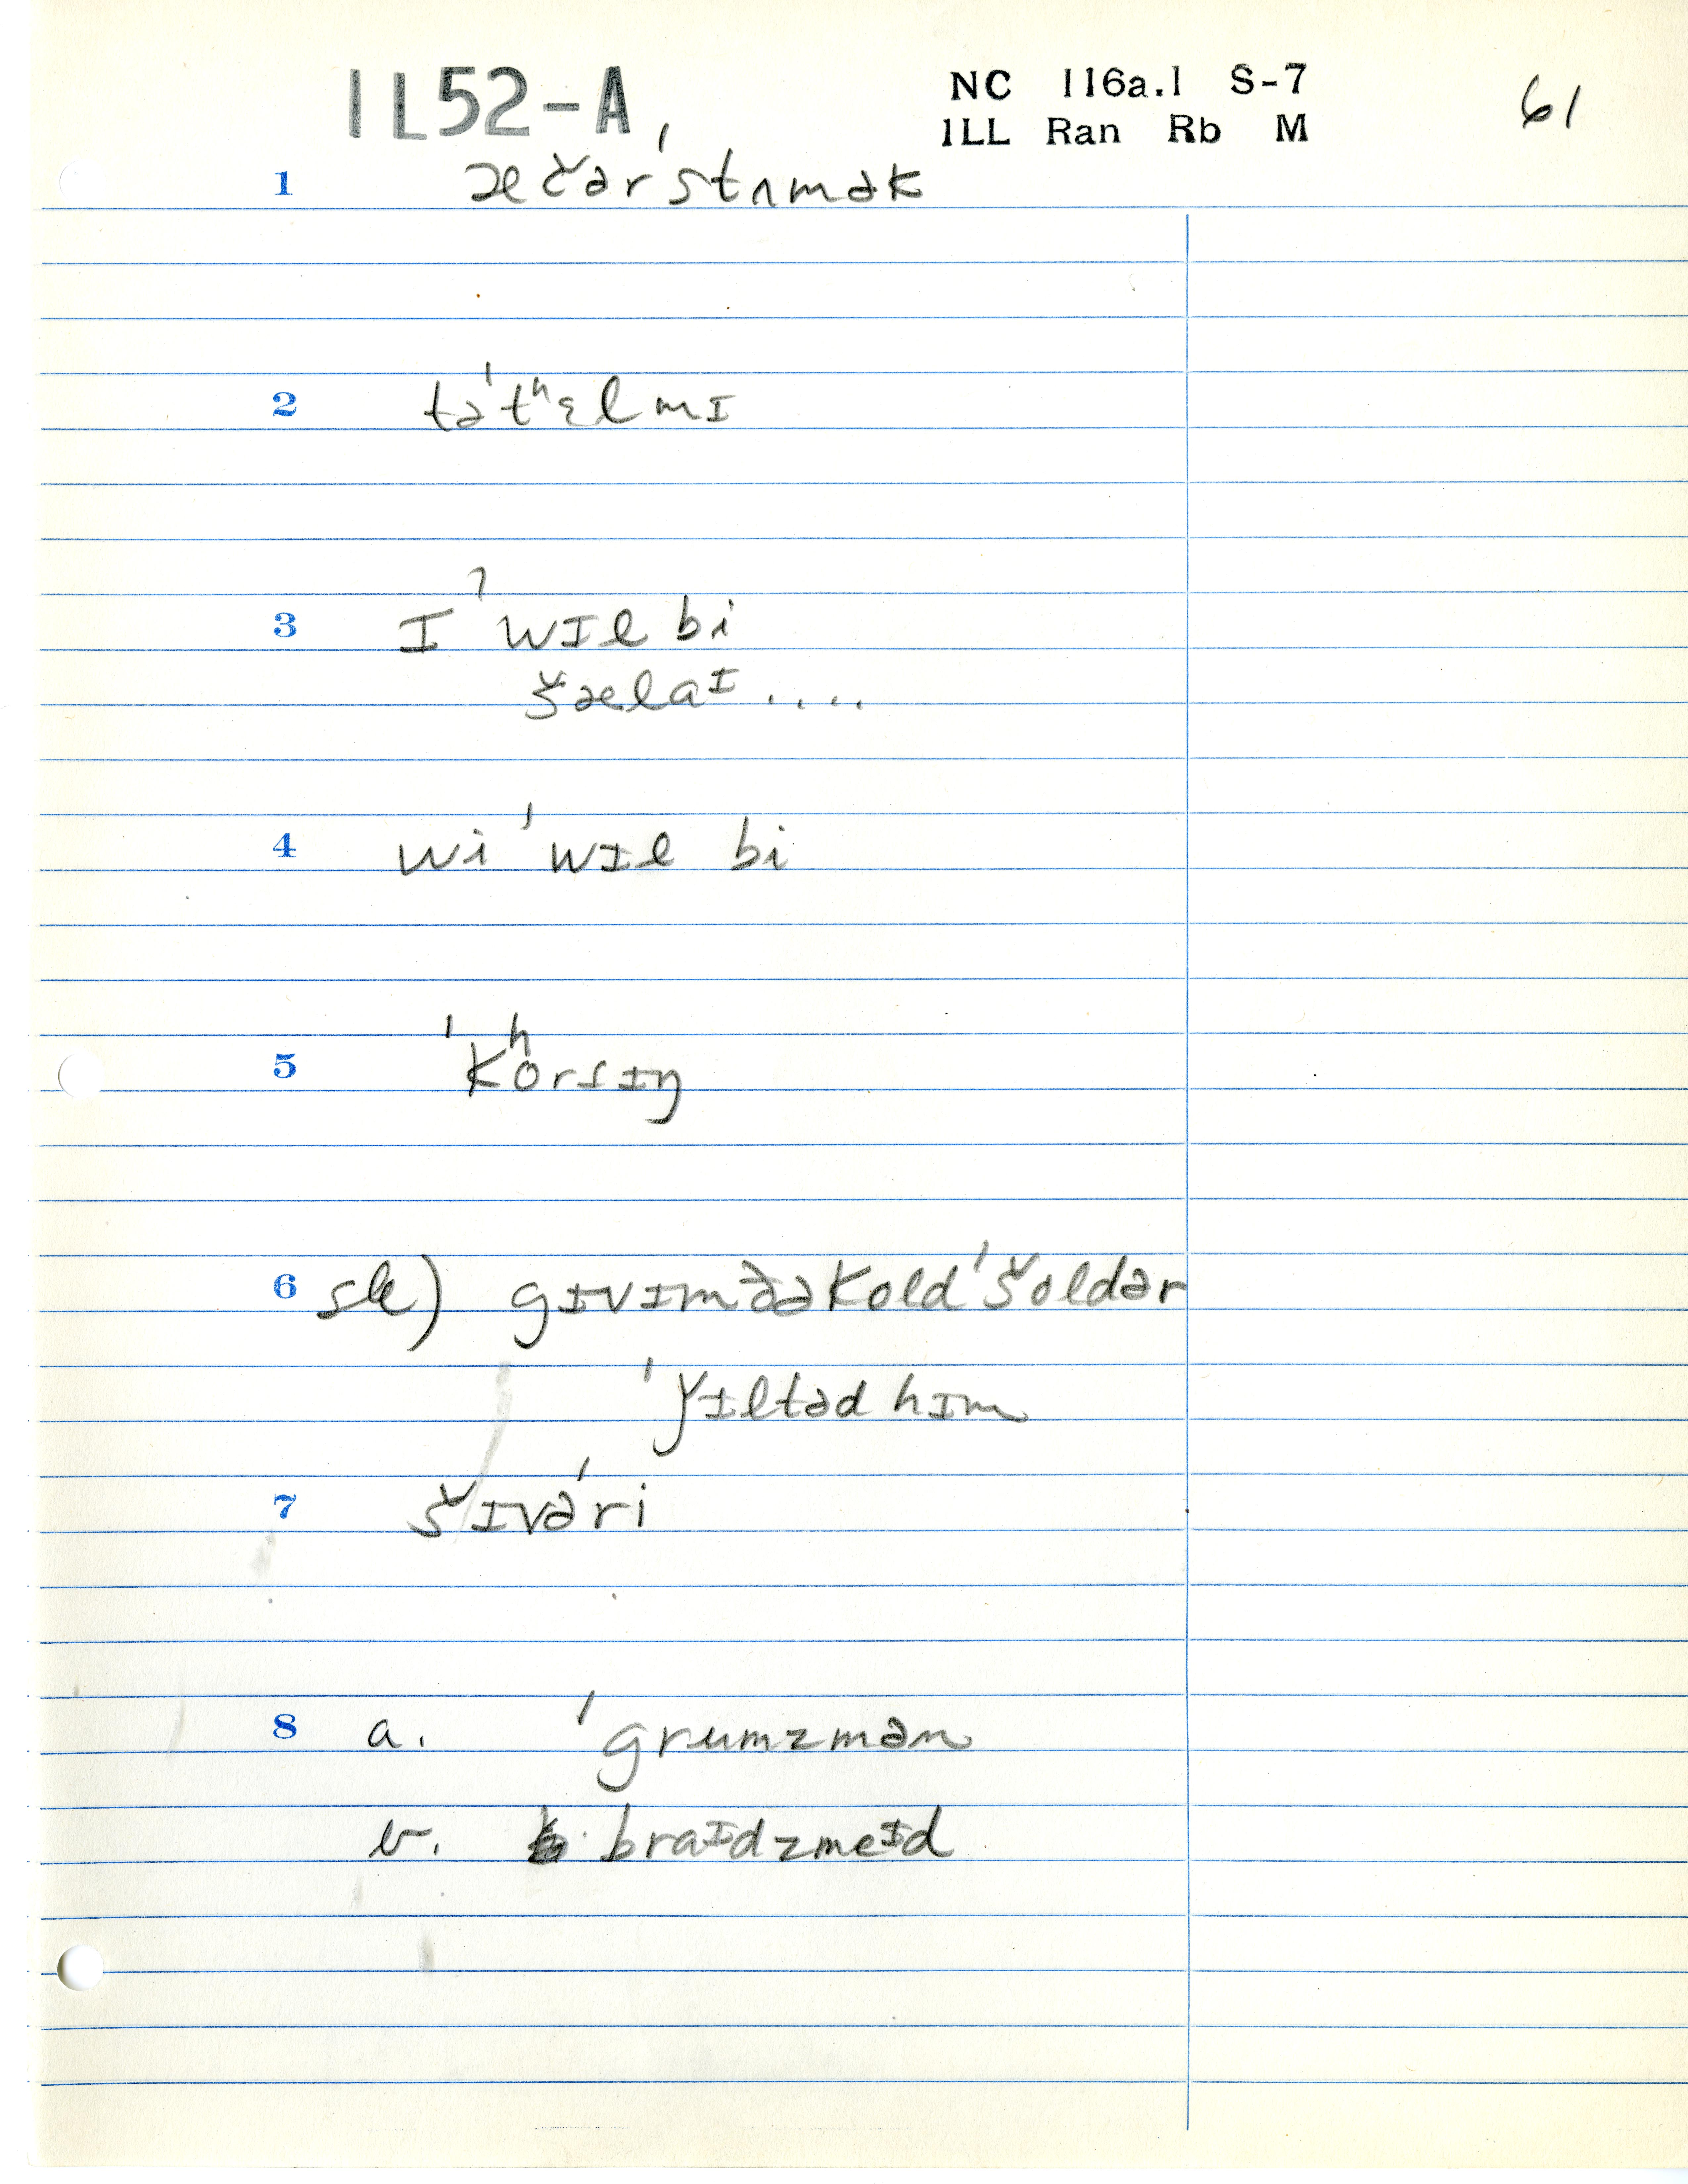 1L52-A,
NC 116a.1 S-7
1LL Ran Rb M
61
1 æčər'stʌmək
2 tə'tʰɛlmɪ
3 ɪ'wɪl bi
šælaᶦ ....
4 wi'wɪl bi
5 'kʰorsɪŋ
6 sk) gɪvɪmðəkold'šoldər
'ǰɪltəd hɪm
7 šɪvə'ri
8 a. 'grumzmən
b. braᶦdzmeᶦd